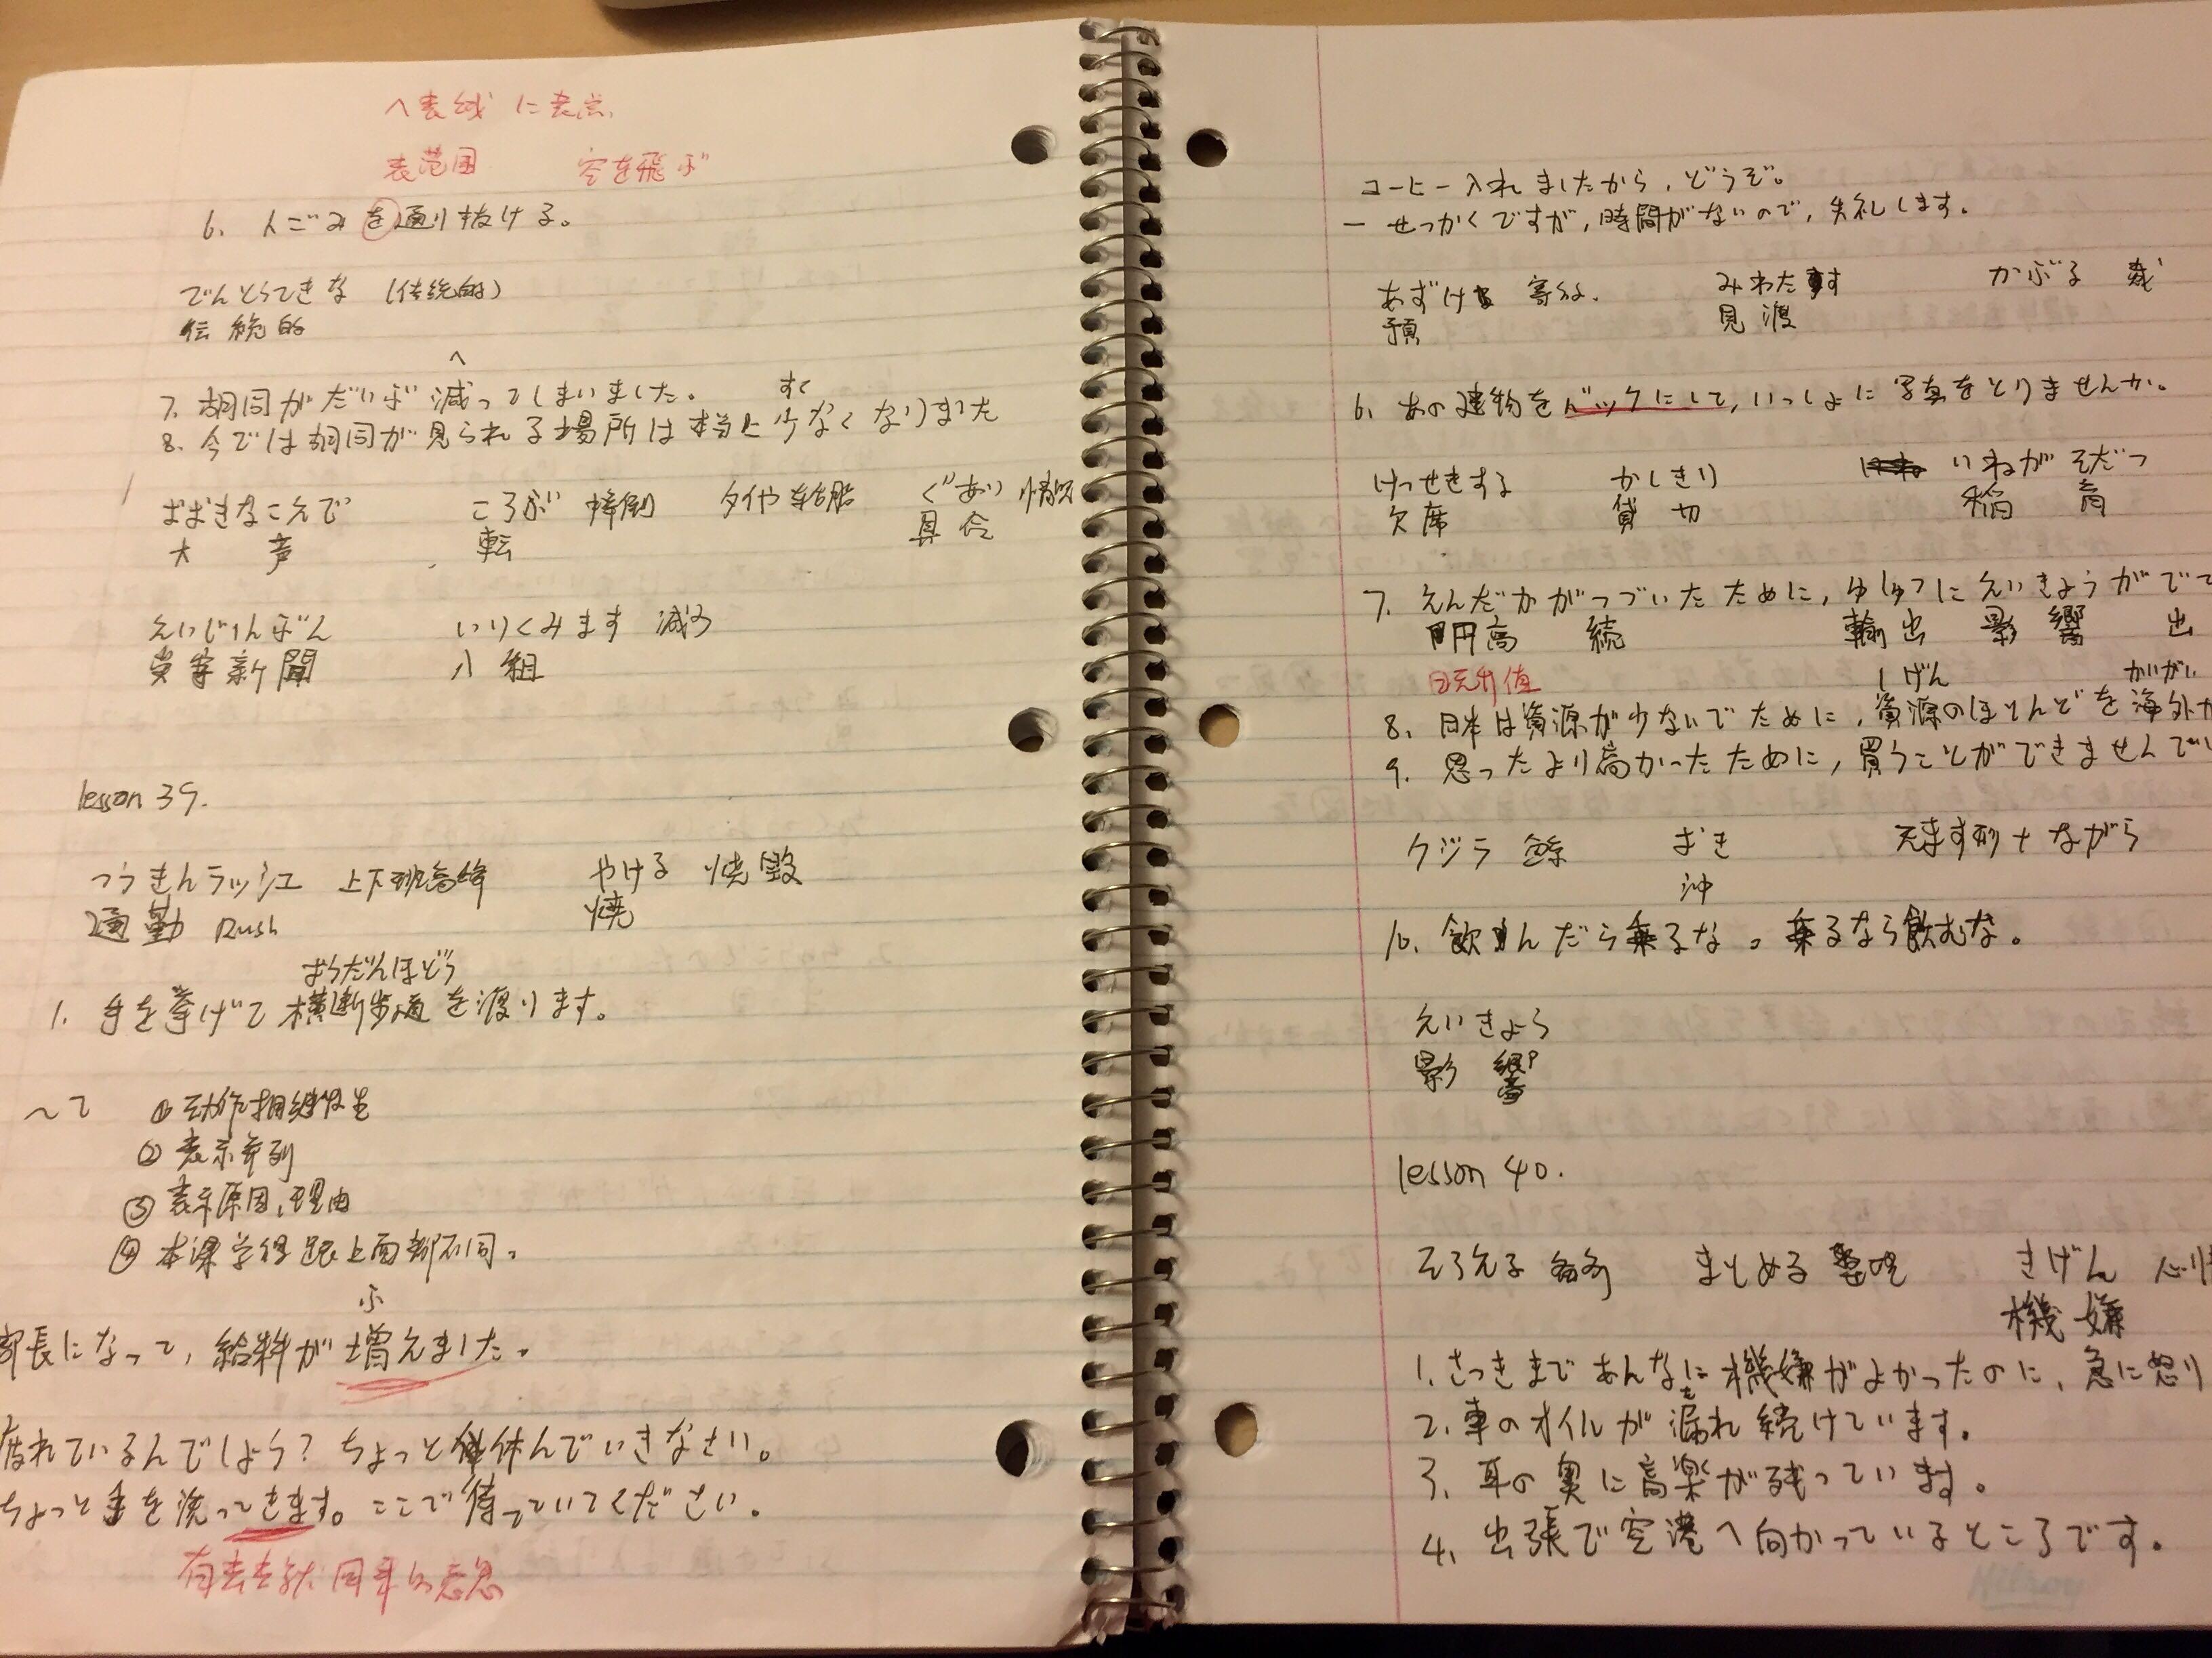 へ表线 に表点
表范围 空を飛ぶ
6. 人ごみを通り抜ける。
でんとうてきな (传统的)
伝統的
へ
7. 胡同がだいぶ減ってしまいました。
すく
8. 今では胡同が見られる場所は本当に少なくなりました
おおきなこえで ころぶ 摔倒 タイヤ 轮胎 ぐあい 情况
大 声 転 具合
えいじしんぶん いりくみます 減る
英字新聞 入組
lesson 39.
つうきんラッシュ 上下班高峰 やける 烧毁
通勤 Rush 焼
おうだんほどう
1. 手を挙げて横断歩道を渡ります。
〜て ①动作相继发生
②表示并列
③表示原因、理由
④本课学得跟上面都不同。
ふ
部長になって、給料が増えました。
疲れているんでしょう？ちょっと休んでいきなさい。
ちょっと手を洗ってきます。ここで待っていてください。
有去去就回来的意思
コーヒー入れましたから、どうぞ。
ー せっかくですが、時間がないので、失礼します。
あずけ 寄存. みわたす かぶる 戴
預 見渡
6. あの建物をバックにして、いっしょに写真をとりませんか。
けっせきする かしきり いねが そだつ
欠席 貸切 稲 育
7. えんだかがつづいたために、ゆしゅつにえいきょうがでて
円高 続 輸出 影響 出
日元升值
しげん かいがい
8. 日本は資源が少ないでために、資源のほとんどを海外か
9. 思ったより高かったために、買うことができませんでし
クジラ 鲸 おき 天ます形+ながら
沖
10. 飲んだら乗るな。乗るなら飲むな。
えいきょう
影響
lesson 40.
そろえる 备齐 まとめる 整理 きげん 心情
機嫌
1. さっきまであんなに機嫌がよかったのに、急に怒り
も
2. 車のオイルが漏れ続けています。
3. 耳の奥に音楽が残っています。
4. 出張で空港へ向かっているところです。